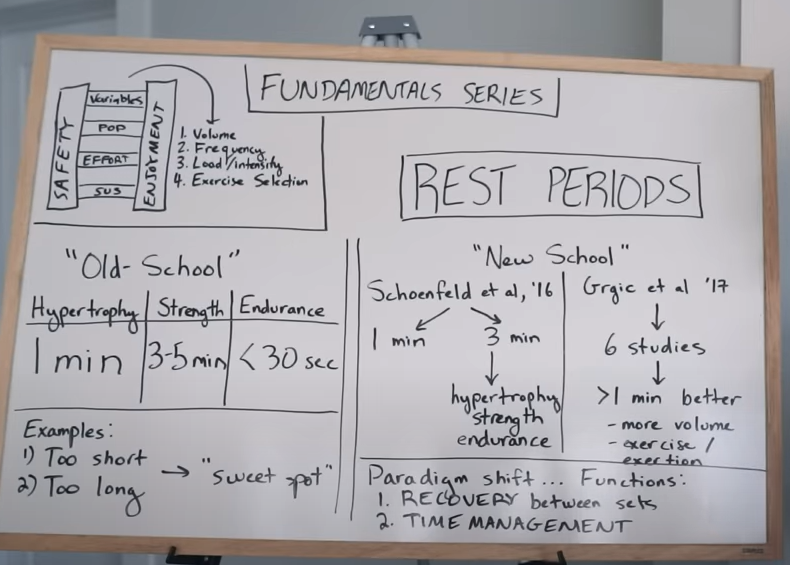 FUNDAMENTALS SERIES
SAFETY
Variables
POP
EFFORT
SUS
ENJOYMENT
1. Volume
2. Frequency
3. Load/intensity
4. Exercise Selection
REST PERIODS
"Old-School"
Hypertrophy Strength Endurance
1 min 3-5 min <30 sec
Examples:
1) Too short
2) Too long
→ "sweet spot"
"New School"
Schoenfeld et al, '16
1 min 3 min
hypertrophy
strength
endurance
Grgic et al '17
6 studies
>1 min better
- more volume
- exercise /
exertion
Paradigm shift... Functions:
1. RECOVERY between sets
2. TIME MANAGEMENT